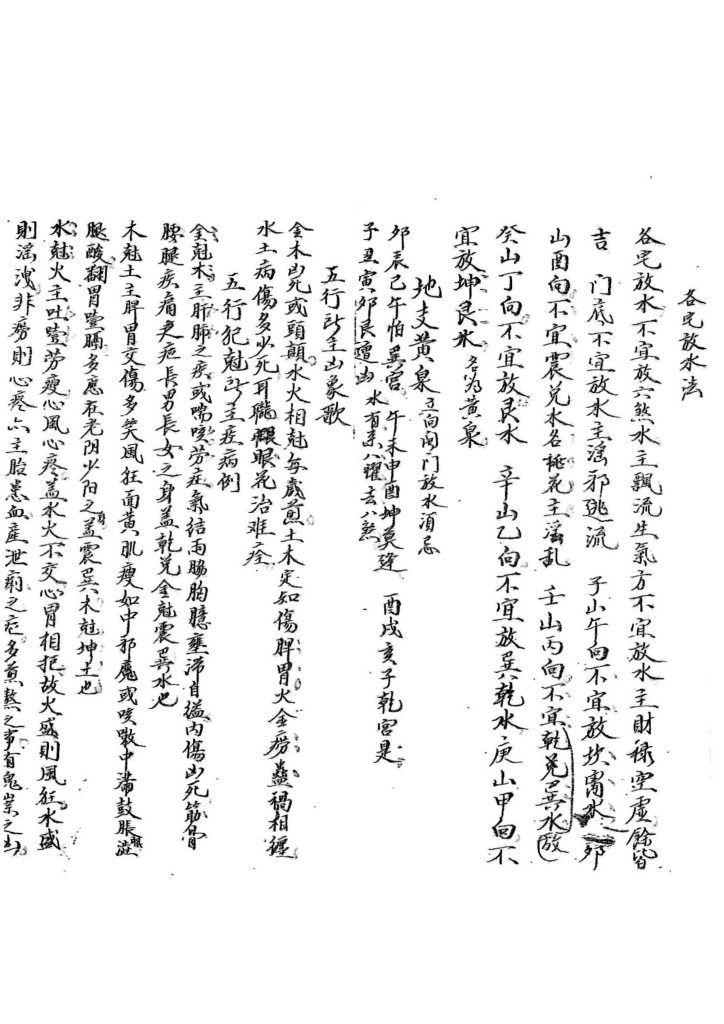 各宅放水法
各宅放水不宜放六煞水主飄流生氣方不宜放水主財祿空虛餘皆
吉 門底不宜放水主淫邪逃流 子山午向不宜放坎离水 卯
山酉向不宜震兌水名桃花主淫乱 壬山丙向不宜乾兌巽水放
癸山丁向不宜放艮水 辛山乙向不宜放巽乾水庚山甲向不
宜放坤艮水 名为黄泉
地支黄泉 立向開门放水消忌
卯辰巳午怕巽宫 午未申酉坤莫逢 酉戌亥子乾宮是
子丑寅卯艮遭凶 水有八曜去八煞
五行所主凶象歌
金木凶死或頭顛水火相尅每歲煎土木定知傷脾胃火金癆蠱禍相纏
水土病傷多少死耳聾眼花治难痊
五行犯尅所主症病例
金尅木主肺之疾或喘咳劳症氣结兩脇胸臆壅滞自缢内傷凶死筋骨
腰腿疾痛之疤長男長女之身盖乾兌金尅震巽木也
木尅土主脾胃交傷多笑風狂面黄肌瘦如中邪魔或咳嗽中滿鼓脹
腿酸翻胃噎膈多應在老阴少阳之盖震巽木尅坤土也
水尅火主吐噎劳瘦心風心疼盖水火不交心胃相拒故火盛則風狂水盛
則淫洩非癆則心疼亦主胎患血産泄痢之症多煎熬之事有鬼祟之